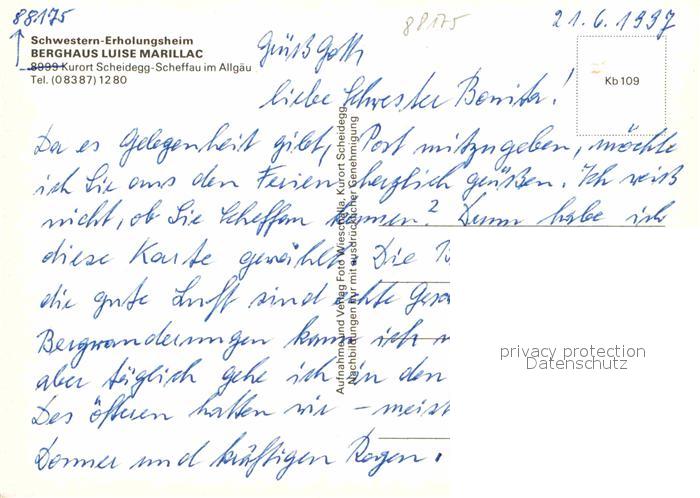 88175
88175
21.6.1997
Schwestern-Erholungsheim
BERGHAUS LUISE MARILLAC
8999 Kurort Scheidegg-Scheffau im Allgäu
Tel. (08387) 1280
Kb 109
Grüß Gott
liebe Schwester Bonita!
Da es Gelegenheit gibt, Post mitzugeben, möchte
ich Sie aus den Ferien herzlich grüßen. Ich weiß
nicht, ob Sie Scheffau kennen? Drum habe ich
diese Karte gewählt. Die
die gute Luft sind echte
Bergwanderungen kann ich
aber täglich gehe ich in den
Des öfteren hatten wir – meist
Donner und kräftigen Regen.
Aufnahme und Verlag Foto Wiescholla, Kurort Scheidegg
Nachbildungen nur mit ausdrücklicher Genehmigung
privacy protection
Datenschutz